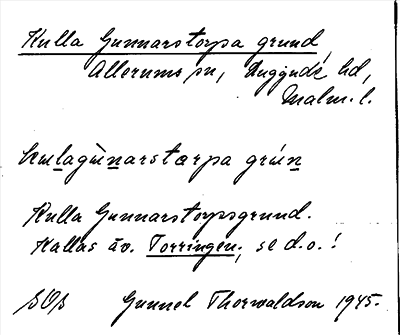 Kulla Gunnarstorpa grund,
Allerums sn, Luggude hd,
Malm. l.
kɯlagùnarstærpa grún
Kulla Gunnarstorpsgrund.
Kallas äv. Torringen, se d.o.!
SOp Gunnel Thorwaldson 1945.